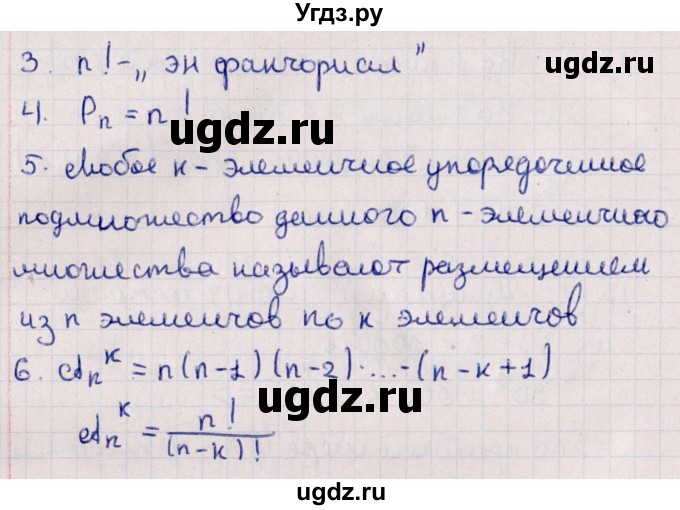 Угдз.ру
3. n! - „эн факториал"
ugdz.ru
4. Pₙ = n!
ugdz.ru ugdz.ru
5. Любое к - элементное упорядоченное
подмножество данного n - элементного
множества называют размещением
из n элементов по к элементов
ugdz.ru
6. Aₙᵏ = n(n-1)(n-2)·...·(n-к+1)
ugdz.ru
Aₙᵏ = n!/(n-к)!
ugdz.ru
ugdz.ru